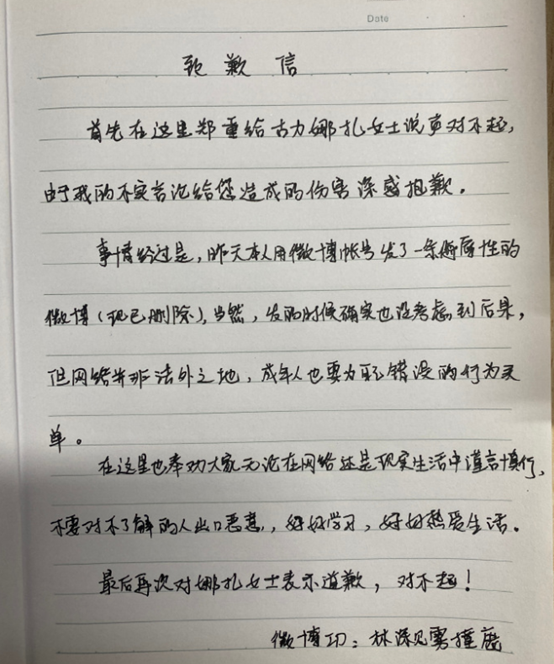 Date
致歉信
首先在这里郑重给古力娜扎女士说声对不起,
由于我的不实言论给您造成的伤害深感抱歉。
事情经过是,昨天本人用微博帐号发了一条侮辱性的
微博(现已删除),当然,发的时候确实也没考虑到后果,
但网络并非法外之地,成年人也要为自己错误的行为买
单。
在这里也奉劝大家无论在网络还是现实生活中谨言慎行,
不要对不了解的人出口恶意,好好学习,好好热爱生活。
最后再次对娜扎女士表示道歉,对不起!
微博ID:林深见雾撞鹿